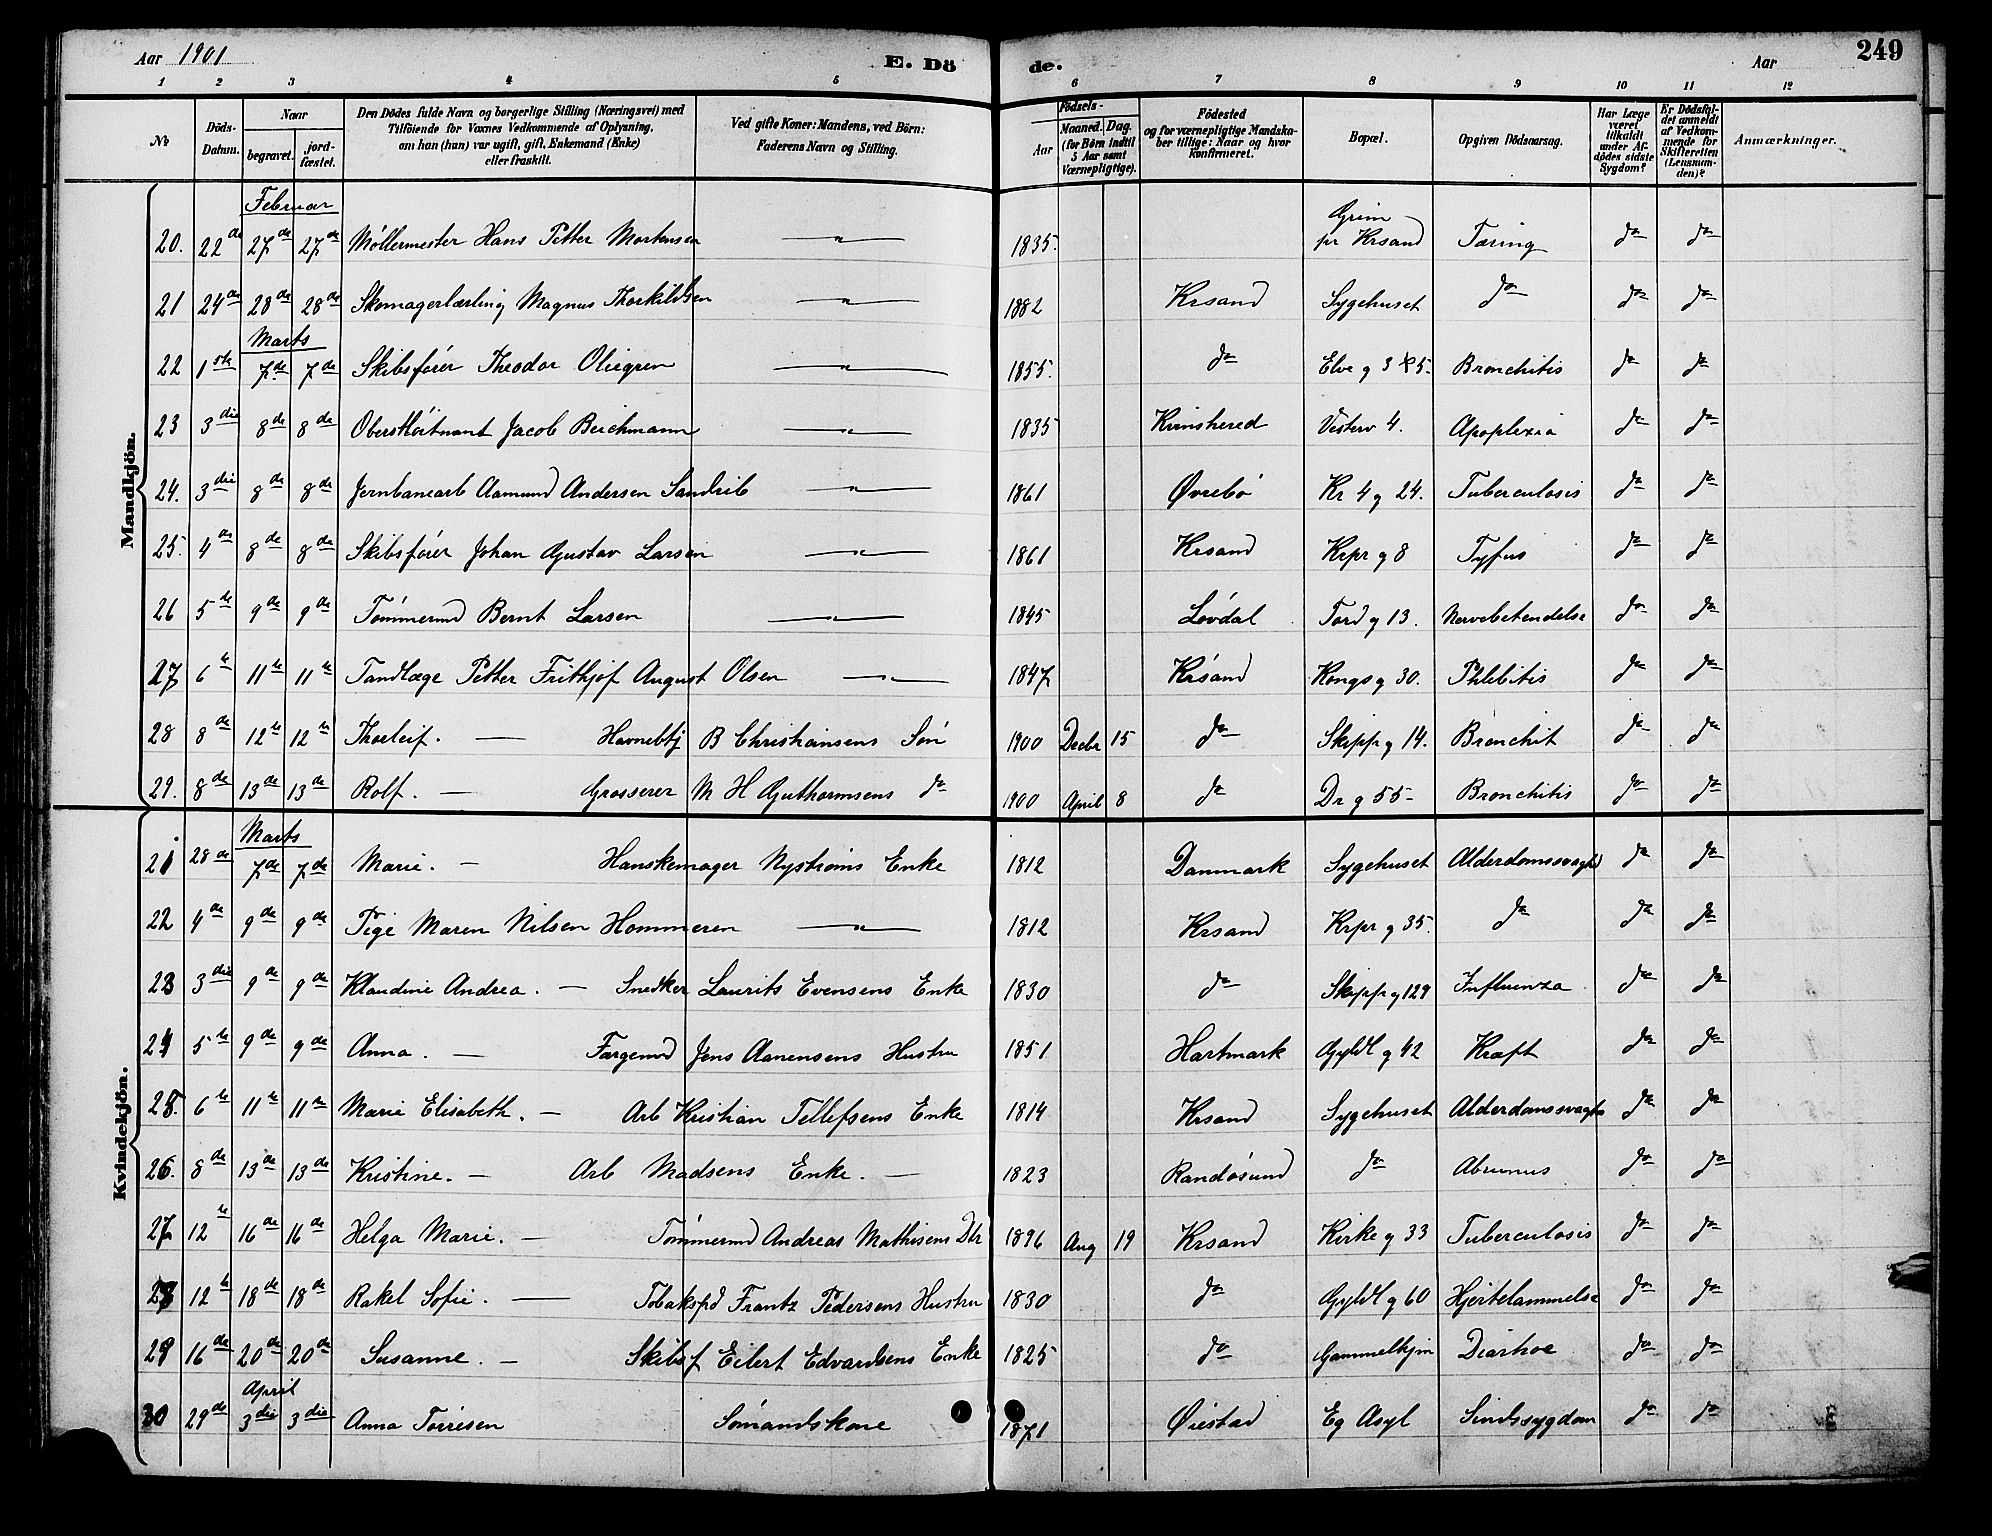 Aar 1901 E. Dö de. Aar 249
1 2 3 4 5 6 7 8 9 10 11 12
No Döds-Datum. Naar begravet. jord-fæstet. Den Dödes fulde Navn og borgerlige Stilling (Næringsvei) med Tilföiende for Voxnes Vedkommende af Oplysning, om han (hun) var ugift, gift, Enkemand (Enke) eller fraskilt. Ved gifte Koner: Mandens, ved Börn: Faderens Navn og Stilling. Födsels- Aar Maaned. Dag. (for Börn indtil 5 Aar samt Værnepligtige). Födested og for værnepligtige Mandska-ber tillige: Naar og hvor konfirmeret. Bopæl. Opgiven Dödsaarsag. Har Læge været tilkaldt under Af-dödes sidste Sygdom? Er Dödsfal-det anmeldt af Vedkom-mende for Skifteretten (Lensman-den)? Anmærkninger.
Mandkjön.
Februar
20. 22de 27de 27de Møllermester Hans Petter Mortensen — " — 1835. Grim pr Krsand Tæring Ja Ja
21 24de 28de 28de Skomagerlærling Magnus Thorkildsen — " — 1882 Krsand Sygehuset do Ja Ja
Marts
22 1ste 7de 7de Skibsfører Theodor Oliegren — " — 1855. do Elve g 35. Bronchitis Ja Ja
23 3die 8de 8de Oberstløitnant Jacob Beichmann — " — 1835 Kvinsherred Vesterv 4. Apoplexia Ja Ja
24. 3die 8de 8de Jernbanearb Aamund Andersen Sandrib — " — 1861 Øvrebø Kr 4 g 24. Tuberculosis Ja Ja
25. 4de 8de 8de Skibsfører Johan Gustav Larsen — " — 1861 Krsand Krpr g 8 Tyfus Ja Ja
26 5te 9de 9de Tømmermd Bernt Larsen — " — 1845 Løvdal Tord g 13. Nervebetendelse Ja Ja
27 6te 11te 11te Tandlæge Petter Frithjof August Olsen — " — 1847 Krsand Kongs g 30. Phlebitis Ja Ja
28 8de 12te 12te Thorleif. — Havnebtj B Christiansens Søn 1900 Decbr 15 do Skippr g 14. Bronchit Ja Ja
29. 8de 13de 13de Rolf. — Grosserer M H Guthormsens do 1900 April 8 do Dr g 55 Bronchitis Ja Ja
Kvindekjön.
Marts
21 28de 7de 7de Marie. — Hanskemager Nystrøms Enke 1812 Danmark Sygehuset Alderdomssvaghd Ja Ja
22 4de 9de 9de Pige Maren Nilsen Hommeren — " — 1812 Krsand Krpr g 35. do Ja Ja
23 3die 9de 9de Klaudine Andrea. — Snedker Laurits Evensens Enke 1830 do Skippr g 129 Influenza Ja Ja
24 5te 9de 9de Anna. — Færgemd Jens Aanensens Hustru 1851 Hartmark Gyldl g 42 Kræft Ja Ja
25. 6te 11te 11te Marie Elisabeth. — Arb Kristian Tellefsens Enke 1814 Krsand Sygehuset Alderdomssvaghd Ja Ja
26. 8de 13de 13de Kristine. — Arb Madsens Enke. — 1823 Randøsund do Ja Ja
27 12te 16de 16de Helga Marie. — Tømmermd Andreas Mathisens Dtr 1896 Aug 19 Krsand Kirke g 33 Tuberculosis Ja Ja
28 12te 18de 18de Rakel Sofie. — Tobakspd Frantz Pedersens Hustru 1830 do Gyldl g 60 Hjertelammelse Ja Ja
29 16de 20de 20de Susanne. — Skibsf Eilert Edvardsens Enke 1825 do Gammelhjm Diarhoe Ja Ja
April
30 29de 3die 3die Anna Torrisen Sømandskone 1871 Øiestad Eg Asyl Sindssygdom Ja Ja